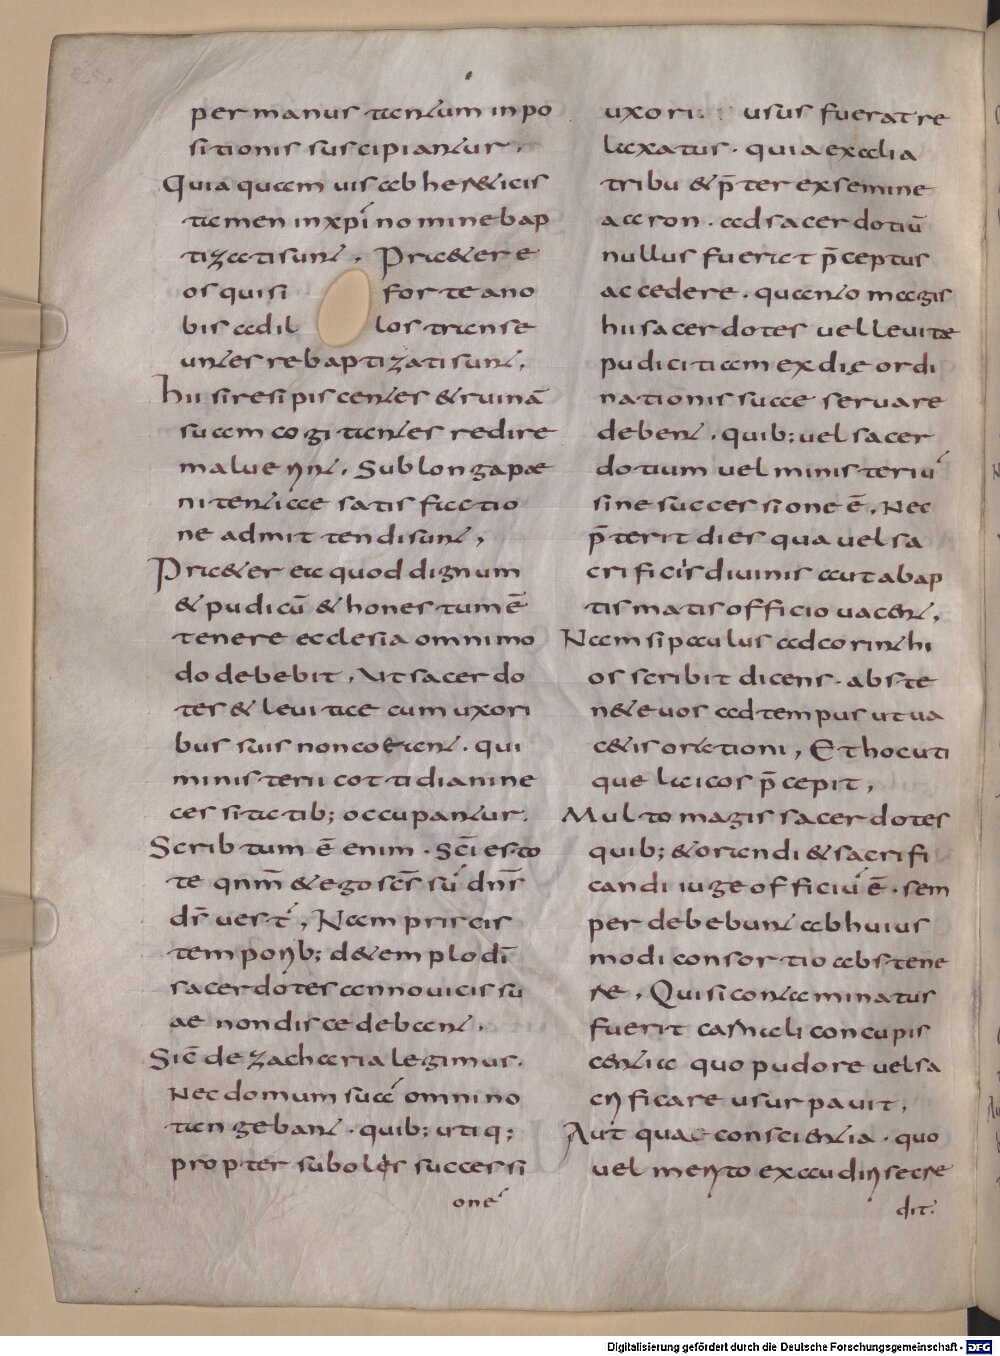 per manus tantum inpo
sitionis suscipiantur.
Quia quam uis ab her&icis
tamen in xpi nomine bap
tizati sunt. Pr&er e
os qui si forte a no
bis ad il los transe
untes rebaptizati sunt,
hii si resipiscentes & ruinā
suam cogitantes redire
maluerint. Sub longa pae
nitentiae satisfactio
ne admittendi sunt,
Pr&er ea quod dignum
& pudicū & honestum ē
tenere ecclesia omnimo
do debebit. Ut sacerdo
tes & leuitae cum uxori
bus suis non coeant. qui
ministerii cottidiani ne
cessitatib; occupantur.
Scribtum ē enim. Sci esto
te qnm & ego scs sū dns
ds uest, Nam priscis
temporib; de templo dī
sacerdotes anno uicis su
ae non discedebant.
Sic de zacharia legimus.
Nec domum suā omnino
tangebant. quib; utiq;
propter suboles successi
onē
uxori usus fuerat re
laxatus. quia ex alia
tribu & p̄ter ex semine
aaron. ad sacerdotiū
nullus fuerat p̄ceptus
accedere. quanto magis
hii sacerdotes uel leuitae
pudicitiam ex die ordi
nationis suae seruare
debent. quib; uel sacer
dotium uel ministeriū
sine successione ē. Nec
p̄terit dies qua uel sa
crificiis diuinis aut a bap
tismatis officio uacent.
Nam si paulus ad corinthi
os scribit dicens. abste
n&e uos ad tempus ut ua
c&is orationi, Et hoc uti
que laicos p̄cepit,
Multo magis sacerdotes
quib; & orandi & sacrifi
candi iuge officiū ē. sem
per debebunt ab huius
modi consortio abstene
re. Qui si contaminatus
fuerit carnali concupis
centia quo pudore uel sa
crificare usurpauit.
Aut qua conscientia. quo
uel merito exaudiri se cre
dit.
Digitalisierung gefördert durch die Deutsche Forschungsgemeinschaft - DFG